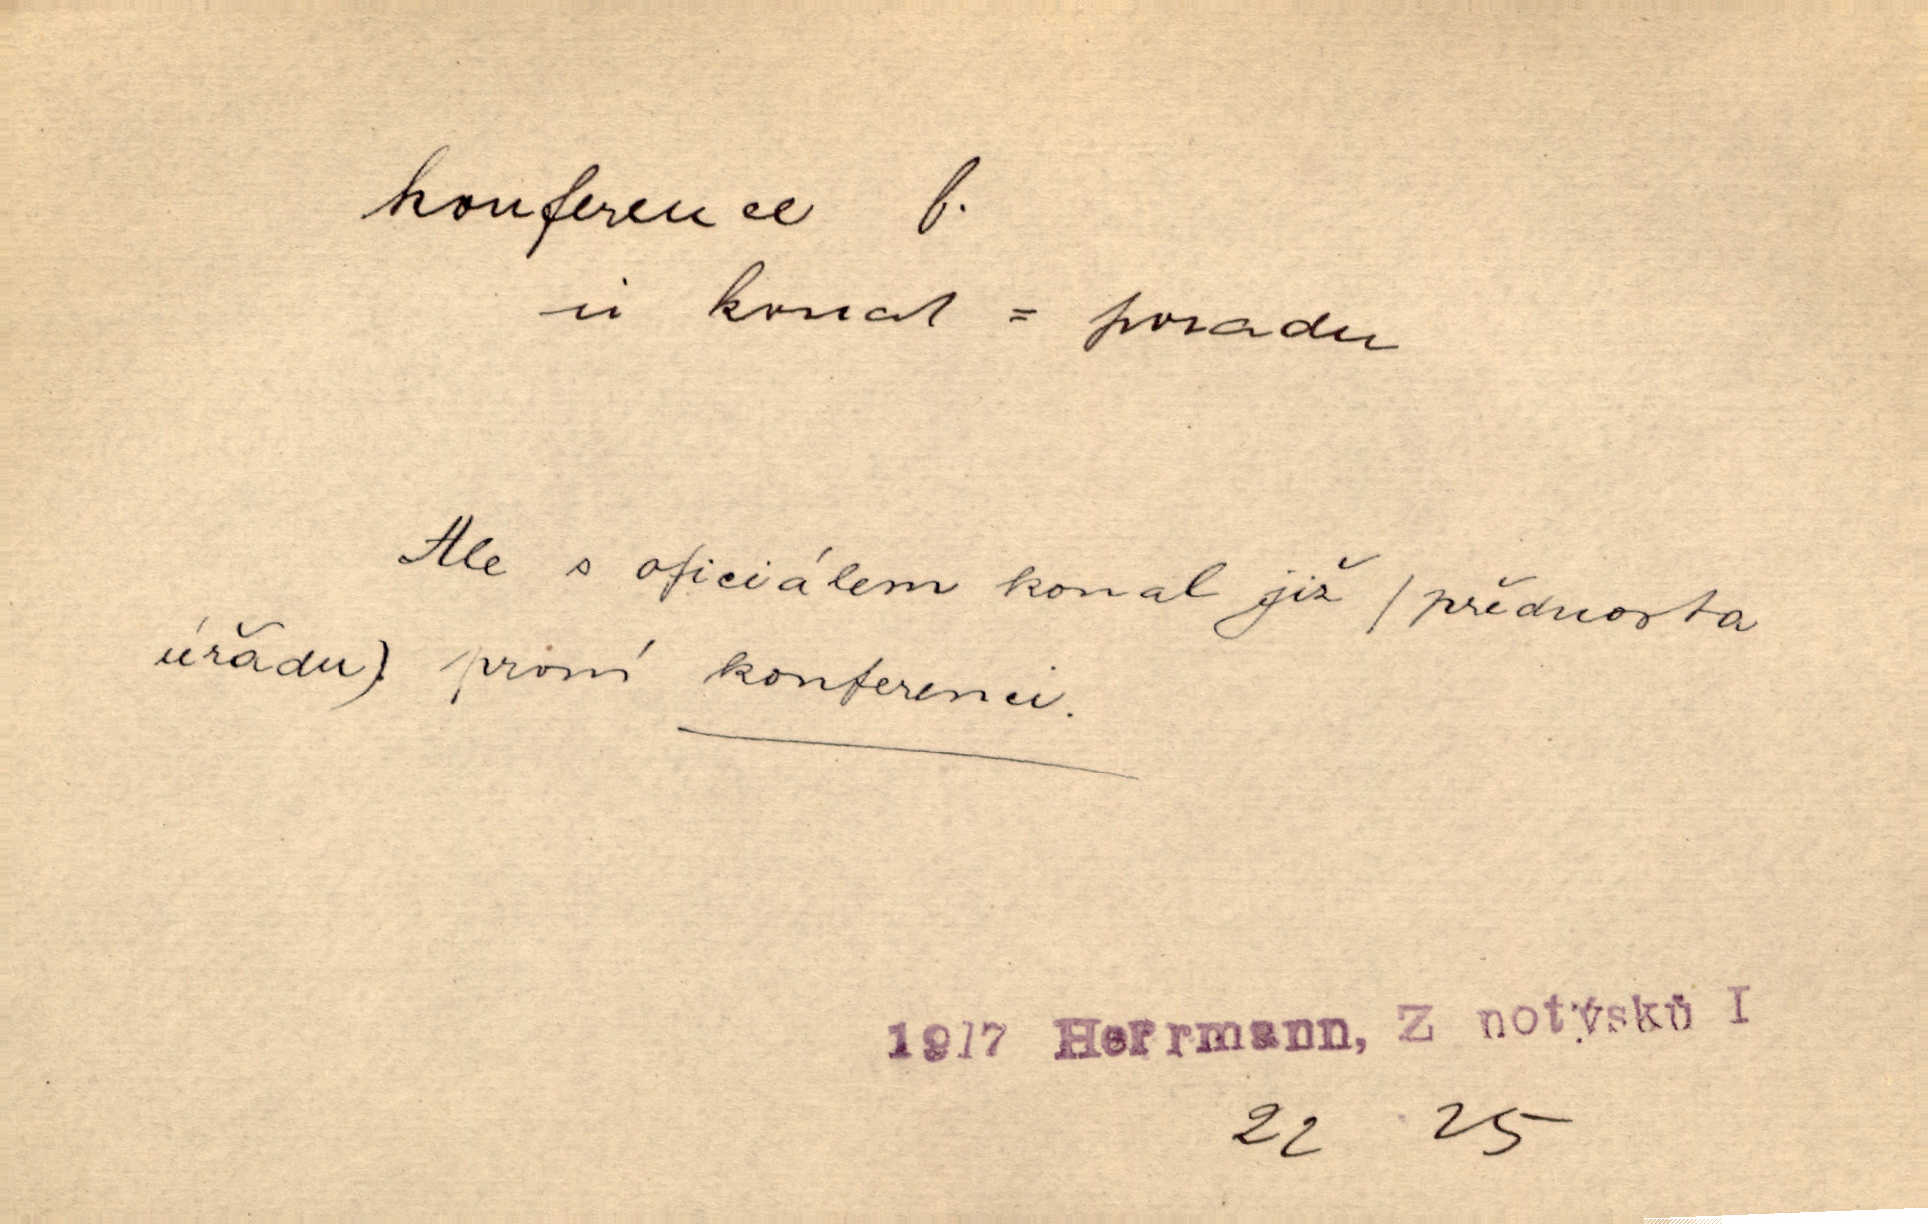 konference f.
–i konal = poradu
Ale s oficiálem konal již /přednosta
úřádu) první konferenci.
1917 Herrmann, Z notýsků I
22 25